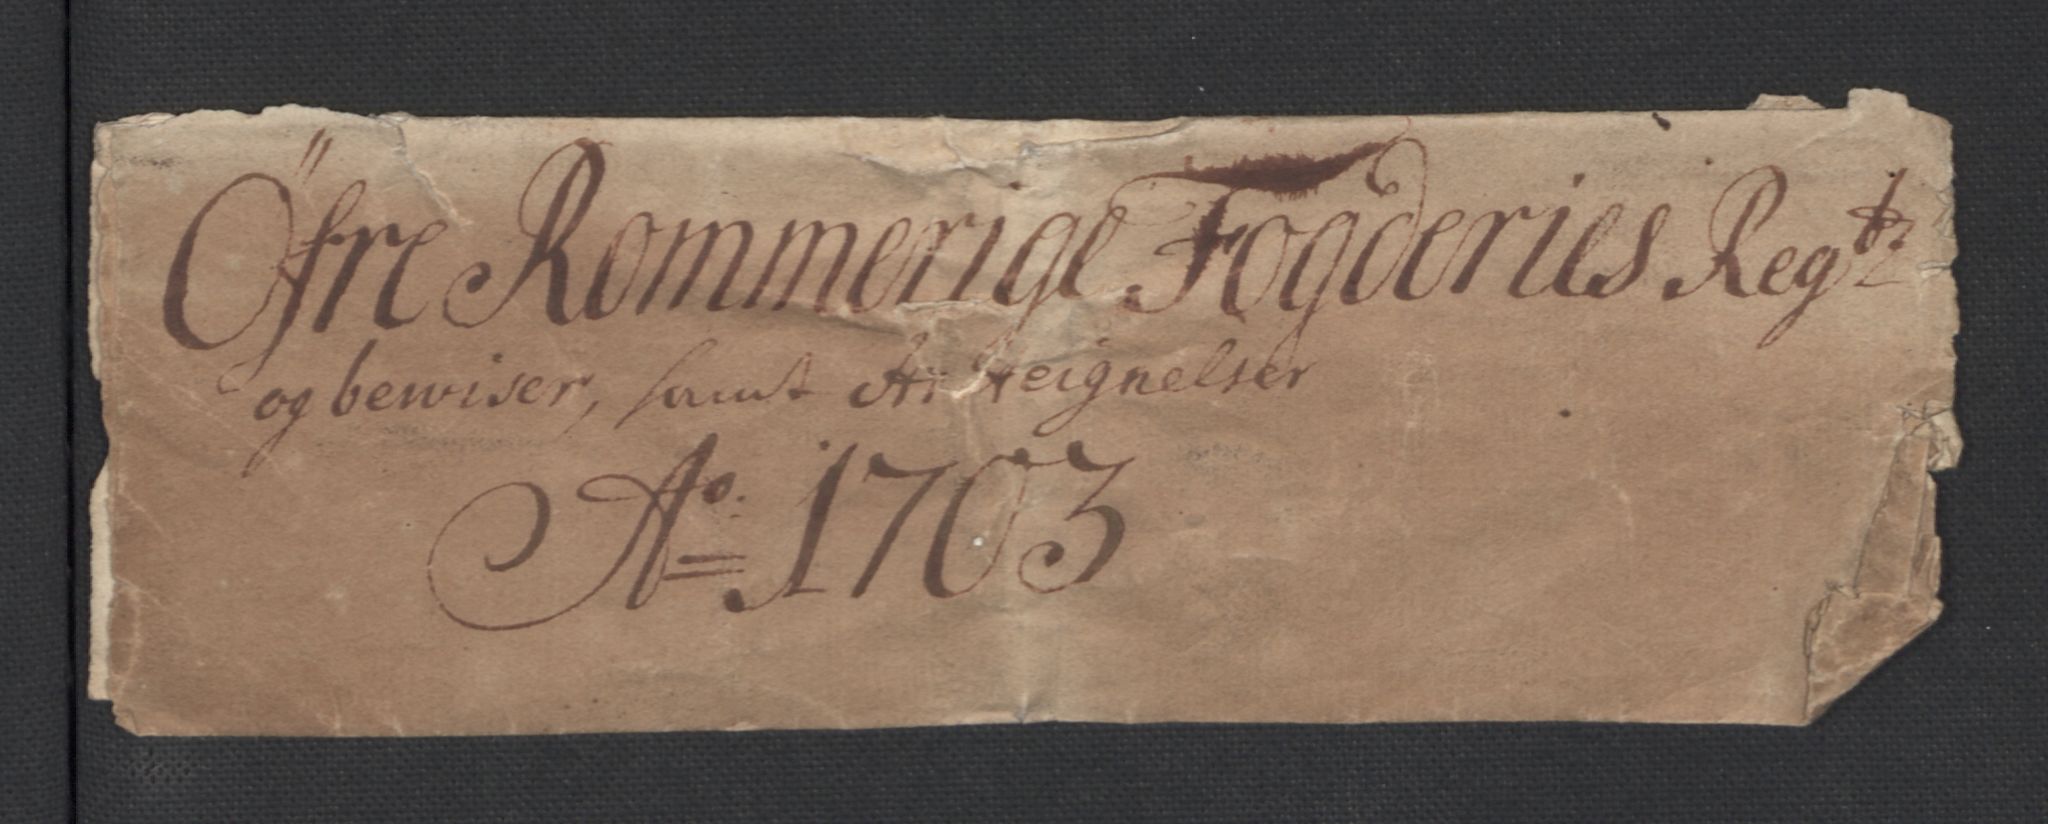 Öfre Rommerige Fogderies Regb:r
og bewiser, samt Anteignelser
Ao. 1703